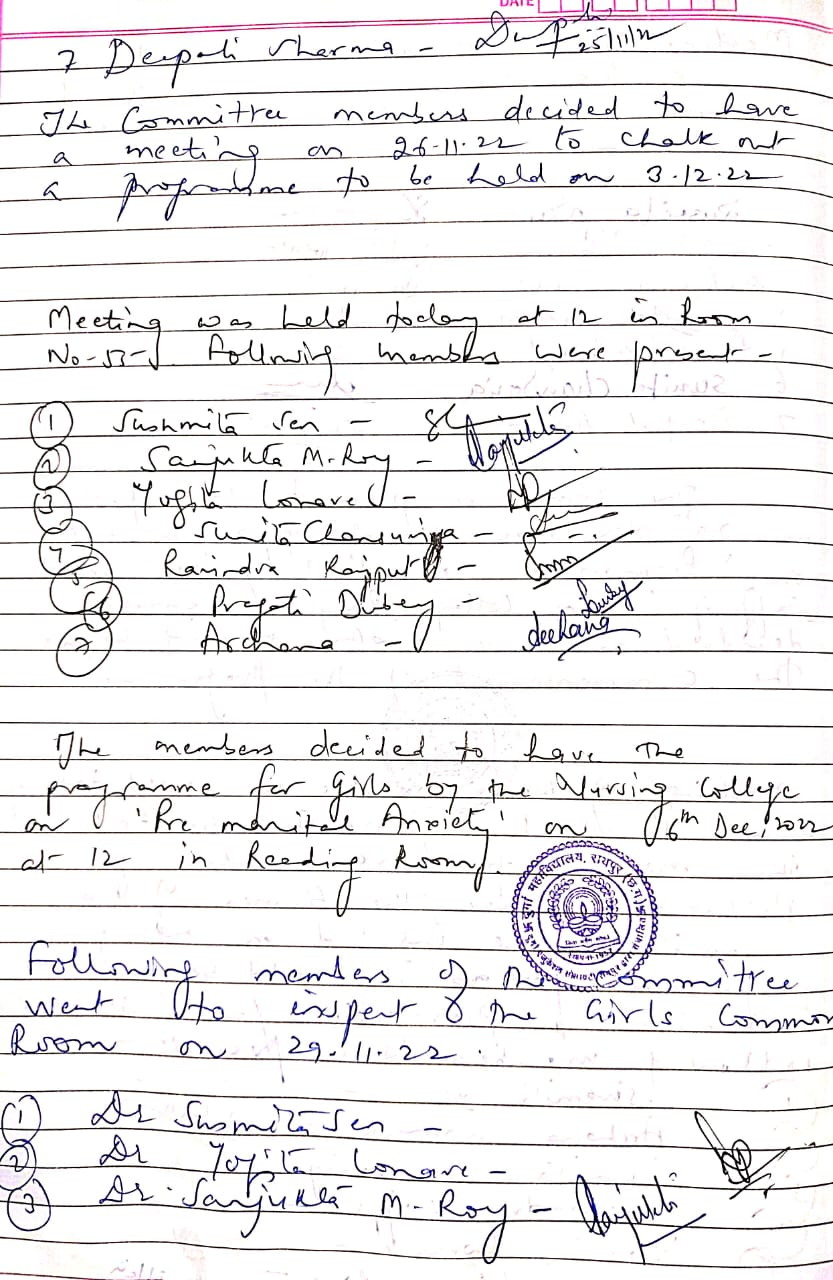 DATE
7 Deepali Sharma - 25/11/22
The Committee members decided to have
a meeting on 26.11.22 to chalk out
a programme to be held on 3.12.22
Meeting was held today at 12 in Room
No-53- Following members were present-
1 Sushmita Sen -
2 Sanjukta M. Roy - Sanjukta
3 Yogita Lonare -
4 Sunita Chansuriya -
5 Ravindra Rajput -
6 Pragati Dubey - Dubey
7 Archana - Archana
The members decided to have the
programme for Girls by the Nursing College
on 'Pre marital Anxiety' on 6th Dec, 2022
at 12 in Reading Room.
दुर्गा महाविद्यालय, रायपुर (छ.ग.)
Following members of the Committee
went to inspect the Girls Common
Room on 29.11.22.
1 Dr Susmita Sen -
2 Dr Yogita Lonare -
3 Dr. Sanjukta M. Roy - Sanjukta